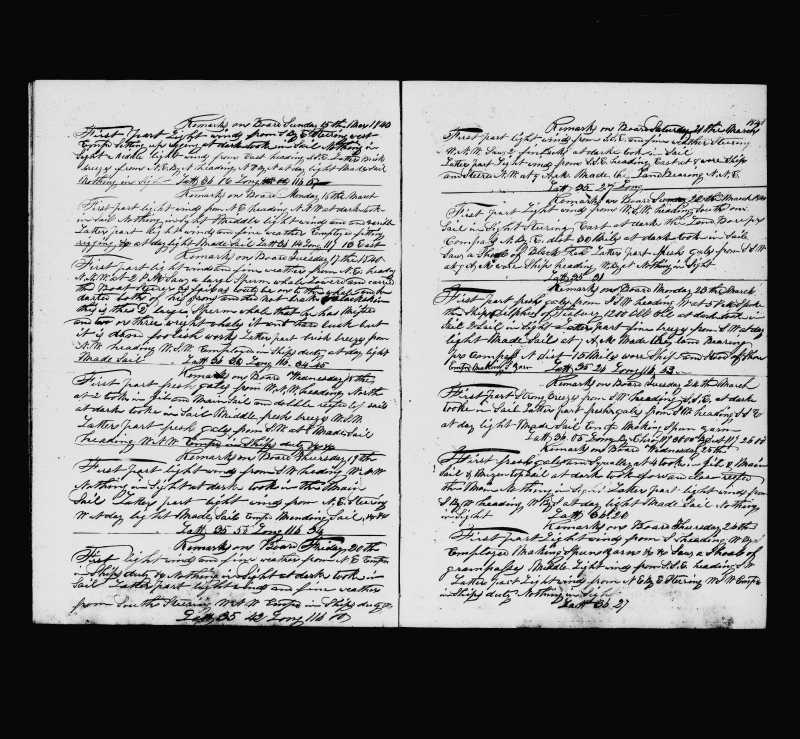 Remarks on Board Sunday 15th Mar 1840
First part Light winds from S by E Steering west
Emp sitting up at dark took in Sail Nothing in
Sight Middle light winds from East heading S.S.E. Latter Brisk
breeze from N.E. by N heading N.W. by N at day light Made Sail
Nothing in Sight Latt 36 16 Long 116
Remarks on Board Monday 16th March
First part Light winds from S.E. heading N.E. by W at dark took
in Sail Nothing in Sight Middle light winds and
Latter part light winds and fine weather Employed fitting
rigging &c at day light Made Sail Latt 36 14 Long 117 10 East
Remarks on Board Tuesday 17th 1840
First part light winds and fine weather from N.E. heading
N.N.W. at 2 P.M. Saw a large Sperm whale Lowered and
the Boat Steerer
darted both of his irons and did not
this is the 2d large Sperm whale that he has Missed
and two or three right whales it was hard luck but
it is done foolish work Latter part brisk breeze from
N.W. heading W.S.W. Employed in Ships duty at day light
Made Sail Latt 36 36 Long 116 34
Remarks on Board Wednesday 18th
First part fresh gales from W.N.W. heading North
at 2 took in Jib and Main Sail and double reefed top sails
at dark took in Sail Middle fresh breeze W.S.W.
Latter part fresh gales from S.W. at Made Sail
heading W.N.W. Empd in Ships duty &c &c
Remarks on Board Thursday 19th
First part light winds from S.W. heading W.N.W
Nothing in Sight at dark took in the Main
Sail Latter part light winds from N.E. Steering
W at day light Made Sail Empd Mending Sail &c &c
Latt 35 56 Long 116 34
Remarks on Board Friday 20th
First light winds and fine weather from N.E. Empd
in Ships duty &c Nothing in Sight at dark took in
Sail Latter part light winds and fine weather
from South Steering W.N.W. Empd in Ships duty &c
Latt 35 42 Long 116
1840
Remarks on Board Saturday 21th March
First part light winds from S.E. fine weather Steering
W.N.W. Saw 2 finbacks at dark took in Sail
Latter part Light winds from S.E. heading East at 4 wore Ship
and Steered N.W. at 7 A.M. Made the Land Bearing N.N.E.
Latt 35 27 Long
Remarks on Board Sunday 22th March 1840
First part Light winds from W.S.W. heading South one
Sail in Sight Steering East at dark the Land Bore per
Compass N.by E. dist 30 Miles at dark took in Sail
Saw a Shoal of Black Fish Latter Part fresh gales from S.S.W
at 7 A.M. wore Ship heading W Nothing in Sight
Latt 35 31
Remarks on Board Monday 23th March
First part fresh gales from S.S.W. heading W at 5 P.M. Spoke
the Ship Delphos of Tisbury 1200 bbls Oil at dark took in
Sail 2 Sail in Sight Latter part fine breeze from S.W. at day
light Made Sail at 7 A.M. Made the land Bearing
per Compass N dist 15 Miles wore Ship and Stood off Shore
Empd Making S yarn Latt 35 26 Long 116 53
Remarks on Board Tuesday 24th March
First Part Strong breeze from S.W. heading S.S.E. at dark
took in Sail Latter part fresh gales from S.W. heading S.S.E
at day light Made Sail Emp Making Spun yarn
Latt 36 05 Long by Chro
Remarks on Board Wednesday 25th
First fresh gales and Squally at 4 took in Jib & Main
Sail & Mizen top Sail at dark took for and close reefed
the Main Nothing in Sight Latter part light winds from
S by W heading W by S at day light Made Sail Nothing
in Sight Latt 36 20
Remarks on Board Thursday 26th
First part Light winds from S heading W by
Employed Making Spun yarn &c &c Saw a Shoal of
grampuses Middle Light winds from S.S.E. heading S.W
Latter part Light winds from N.E. by E Steering W.S.W Empd
in Ships duty Nothing in Sight
Latt 36 27